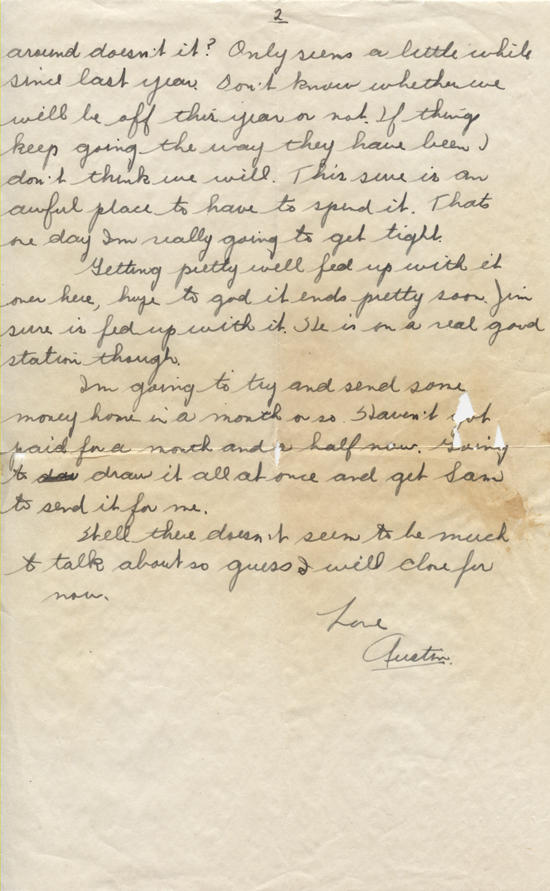 2
around doesn't it? Only seems a little while
since last year. Don't know whether we
will be off this year or not. If things
keep going the way they have been I
don't think we will. This sure is an
awful place to have to spend it. Thats
one day I'm really going to get tight.
Getting pretty well fed up with it
over here, hope to god it ends pretty soon. Jim
sure is fed up with it. He is on a real good
station though.
I'm going to try and send some
money home in a month or so. Haven't got
paid for a month and a half now. Going
to draw it all at once and get Sam
to send it for me.
Well there doesn't seem to be much
to talk about so guess I will close for
now.
Love
Austin.